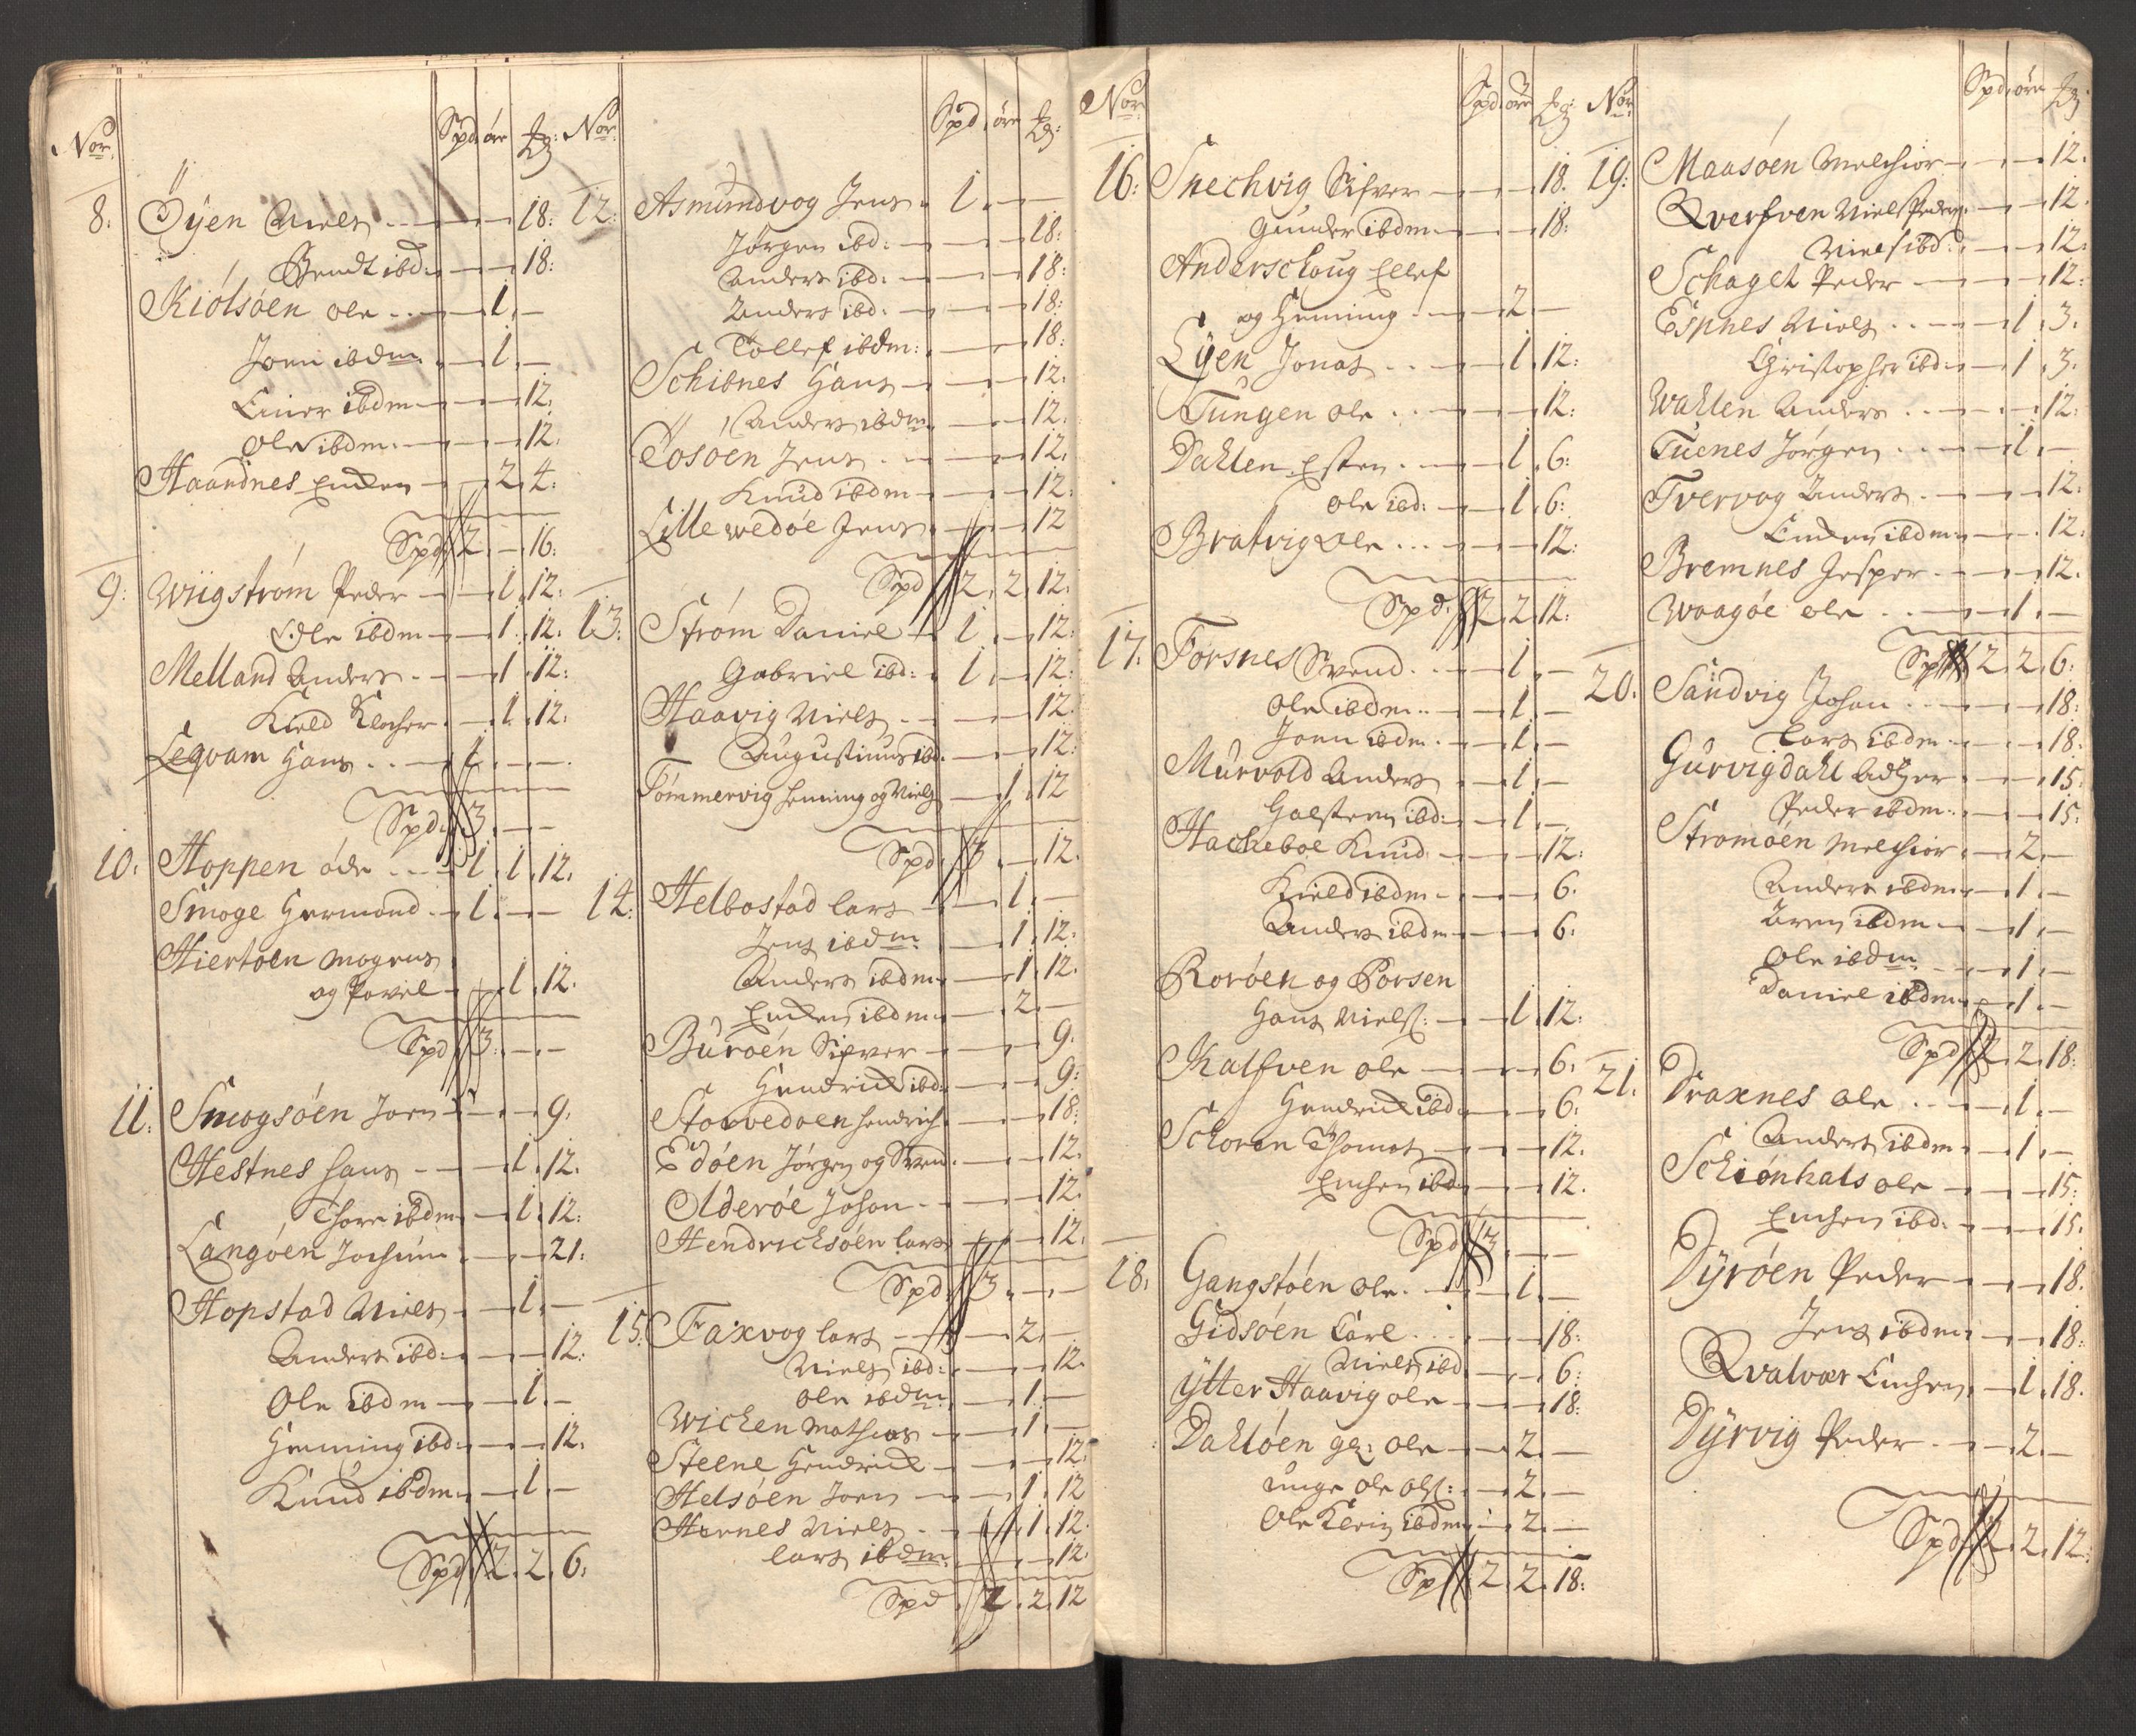 Nor: Spd. öre
8: Öÿen Niels 18:
Bendt ibd: 18:
Kiölsöen ole 1. –
Joen ibdm 1. –
Einer ibdm 12.
Ole ibdm 12.
Haandnes 2 4:
Spd 2. – 16:
9: Wiigstrøm Peder 1. 12:
Ole ibdm 1. 12:
Melland Anders 1. 12:
Kield Klocher 1. 12:
Leqvam Hans 1. –
Spd: 3. – –
10: Hoppen ode 1. 1. 12.
Smoge Hermand 1. – –
Hiertøen Mogens
og Povel 1. 12.
Spd 3. – –
11: Smogsöen Joen 9.
Hestnes Hans 1. 12.
Thore ibdm 1. 12:
Langöen Jochum 21:
Hopstad Niels 1. –
Anders ibd: 12:
Ole ibdm 1. –
Heming ibd: 12.
Knud ibdm 1. –
Spd 2. 2. 6:
Nor: Spd. öre
12: Asmundvog Jens 1. – –
Jörgen ibd: 18:
Anders ibd: 18:
Anders ibd: 18:
Tollef ibdm: 18:
Schibnes Hans 12.
Anders ibdm 12.
Tosöen Jens 12.
Knud ibdm 12.
Lille wedöe Jens 12
Spd 2. 2. 12.
13: Ström Daniel 1. – 12:
Gabriel ibd: 1. – 12:
Haavig Niels 12.
Augustinus ibd: 12:
Tömmervig Heming og Niels 1. 12
Spd 3. – 12.
14: Helbostad Lars 1. –
Jens ibdm 1. 12:
Anders ibdm 1. 12.
ibdm 2. –
Buröen Sifver 9.
Hendrich ibd: 9:
Storvedoen Hendrich 18:
Edöen Jörgen og Svend 12.
Olderöe Johan 12.
Hendrichsöen Lars 12.
Spd 3. – –
15: Faxvog Lars 2. –
Niels ibd: 12.
Ole ibdm 1. –
Wichen Mathias 1. –
Steene Hendrich 12.
Helsöen Joen 1. 12
Hernes Niels 1. 12.
Lars ibdm 12.
Spd 2. 2. 12
Nor: Spd. öre
16: Snechvig Sifver 18.
Gunder ibdm 18:
Anderschoug Ellef
og Heming 2. –
Eÿen Jonas 1. 12:
Tungen ole 12:
Dahlen Esten 1. 6:
Ole ibd: 1. 6:
Bratvig Ole 12:
Spd: 2. 2. 12:
17: Forsnes Svend 1. –
Ole ibdm 1. –
Joen ibdm 1. –
Murvold Anders 1. –
Halsten ibd: 1. –
Hacheboe Knud 12:
Kield ibdm 6.
Anders ibdm 6:
Roröen og Porsen
Hans Niels: 1. 12:
Kalfven ole 6.
Hendrich ibd: 6:
Schoren Thomas 12.
ibd: 12.
Spd 3. – –
18: Gangstöen Ole 1. –
Gidsöen Carl 18:
Niels ibd 6:
Ÿtter Haavig ole 18:
Dahlöen gl: ole 2. –
unge ole ols: 2. –
Ole ibdm 2. –
Sp 2. 2. 18:
Nor: Spd. öre
19: Maasöen Melchior 12.
Qverfven Niels Peders: 12.
Niels ibd: 12:
Schaget Peder 12:
Espnes Niels 1. 3.
Christopher ibd: 1. 3.
Wahlen Anders 12:
Tuenes Jörgen 1. –
Tvervog Anders 12:
ibdm 12:
Bremnes Jesper 12.
Waagöe ole 1. –
Sp 2. 2. 6:
20: Sandvig Johan 18:
Lars ibdm 18:
Gurvigdahl 15:
Peder ibdm 15:
Stromöen Melchior 2. –
Anders ibdm 1. –
Aren ibdm 1. –
Ole ibdm 1. –
Daniel ibdm 1. –
Spd 2. 2. 18:
21: Draxnes Ole 1. –
Anders ibdm 1. –
Schiönhals ole 15:
ibd: 15.
Dÿröen Peder 18.
Jens ibdm 18:
Qvalvær 1. 18.
Dÿrvig Peder 2. –
Spd 2. 2. 12: